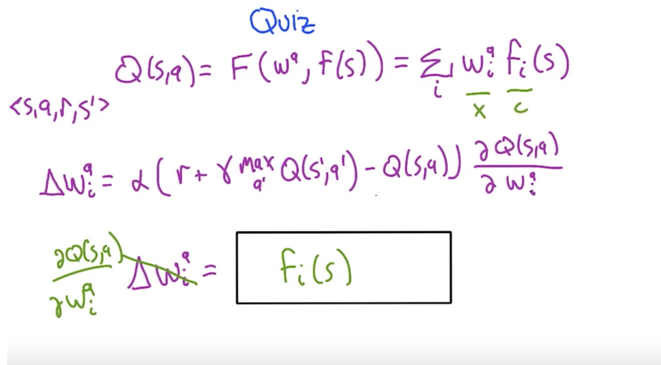 Quiz
Q(s,a) = F(wᵃ, f(s)) = Σᵢ wᵢᵃ fᵢ(s)
x c
<s,a,r,s'>
Δwᵢᵃ = α(r + γ max_a' Q(s',a') - Q(s,a)) ∂Q(s,a)/∂wᵢᵃ
∂Q(s,a)/∂wᵢᵃ Δwᵢᵃ = fᵢ(s)